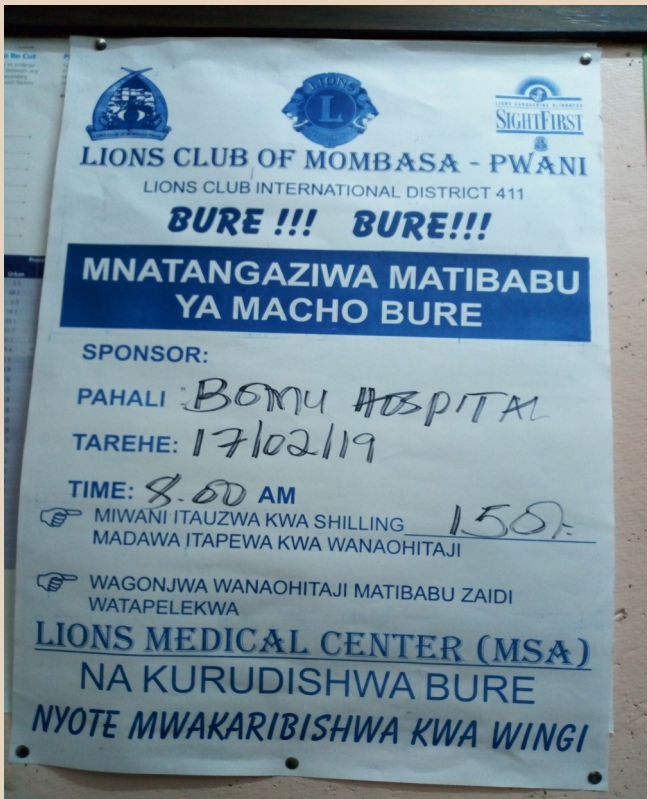 LIONS
L
LIONS CONQUERING BLINDNESS
SIGHTFIRST
LIONS CLUB OF MOMBASA - PWANI
LIONS CLUB INTERNATIONAL DISTRICT 411
BURE !!! BURE!!!
MNATANGAZIWA MATIBABU
YA MACHO BURE
SPONSOR:
PAHALI : BOMU HOSPITAL
TAREHE: 17/02/19
TIME: 8.00 AM
MIWANI ITAUZWA KWA SHILLING 150/-
MADAWA ITAPEWA KWA WANAOHITAJI
WAGONJWA WANAOHITAJI MATIBABU ZAIDI
WATAPELEKWA
LIONS MEDICAL CENTER (MSA)
NA KURUDISHWA BURE
NYOTE MWAKARIBISHWA KWA WINGI